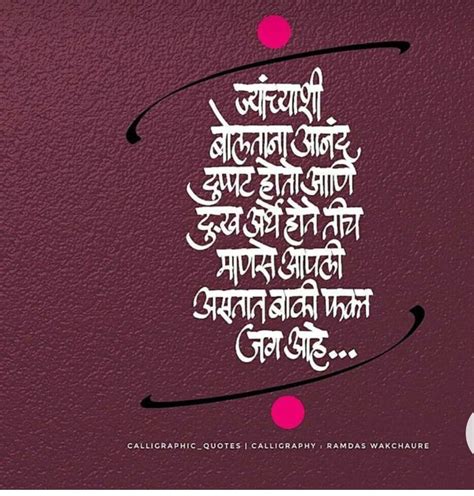 ज्यांच्याशी
बोलताना आनंद
दुप्पट होतो आणि
दुःख अर्धे होते तीच
माणसे आपली
असतात बाकी फक्त
जग आहे...
CALLIGRAPHIC_QUOTES | CALLIGRAPHY : RAMDAS WAKCHAURE